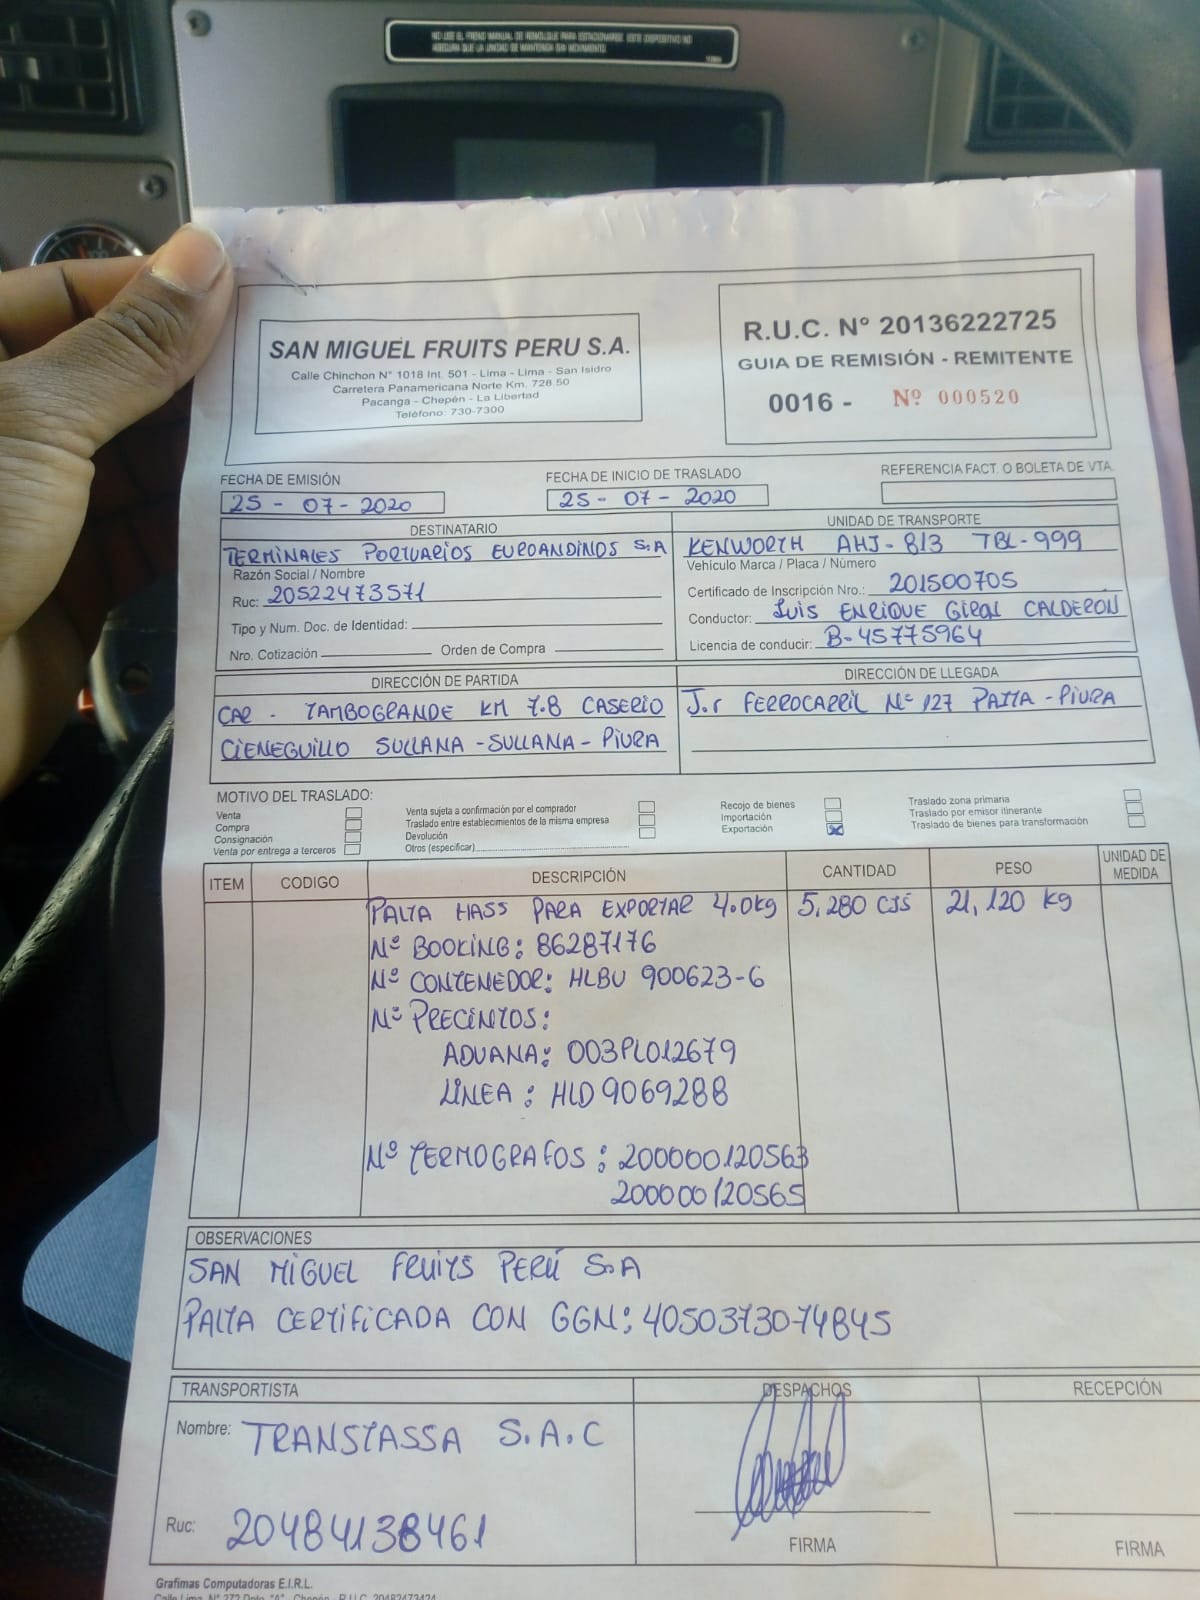 NO USE EL FRENO MANUAL DE REMOLQUE PARA ESTACIONARSE. ESTE DISPOSITIVO NO
ASEGURA QUE LA UNIDAD SE MANTENGA SIN MOVIMIENTO.
SAN MIGUEL FRUITS PERU S.A.
Calle Chinchon N° 1018 Int. 501 - Lima - Lima - San Isidro
Carretera Panamericana Norte Km. 728.50
Pacanga - Chepén - La Libertad
Teléfono: 730-7300
R.U.C. N° 20136222725
GUIA DE REMISIÓN - REMITENTE
0016 - Nº 000520
FECHA DE EMISIÓN
25 - 07 - 2020
FECHA DE INICIO DE TRASLADO
25 - 07 - 2020
REFERENCIA FACT. O BOLETA DE VTA.
DESTINATARIO
TERMINALES PORTUARIOS EUROANDINOS S.A
Razón Social / Nombre
Ruc: 20522473571
Tipo y Num. Doc. de Identidad:
Nro. Cotización Orden de Compra
UNIDAD DE TRANSPORTE
KENWORTH AHJ-813 TBL-999
Vehículo Marca / Placa / Número
Certificado de Inscripción Nro.: 201500705
Conductor: Luis ENRIQUE GIRAL CALDERON
Licencia de conducir: B-45775964
DIRECCIÓN DE PARTIDA
CAR - TAMBOGRANDE KM 7.8 CASERIO
CIENEGUILLO SULLANA - SULLANA - PIURA
DIRECCIÓN DE LLEGADA
J.r FERROCARRIL Nº 127 PAITA - PIURA
MOTIVO DEL TRASLADO:
Venta
Compra
Consignación
Venta por entrega a terceros
Venta sujeta a confirmación por el comprador
Traslado entre establecimientos de la misma empresa
Devolución
Otros (especificar)
Recojo de bienes
Importación
Exportación
Traslado zona primaria
Traslado por emisor itinerante
Traslado de bienes para transformación
ITEM CODIGO DESCRIPCIÓN CANTIDAD PESO UNIDAD DE MEDIDA
PALTA HASS PARA EXPORTAR 4.0kg 5,280 CJS 21,120 kg
Nº BOOKING: 86287176
Nº CONTENEDOR: HLBU 900623-6
Nº PRECINTOS:
ADUANA: 003PL012679
LINEA : HLD9069288
Nº TERMOGRAFOS : 200000120563
200000120565
OBSERVACIONES
SAN MIGUEL FRUITS PERÚ S.A
PALTA CERTIFICADA CON GGN: 4050373074845
TRANSPORTISTA
Nombre: TRANSTASSA S.A.C
Ruc: 20484138461
DESPACHOS
FIRMA
RECEPCIÓN
FIRMA
Grafimas Computadoras E.I.R.L.
Calle Lima N° 272 Dpto. "A" - Chepén - R.U.C. 20482473424